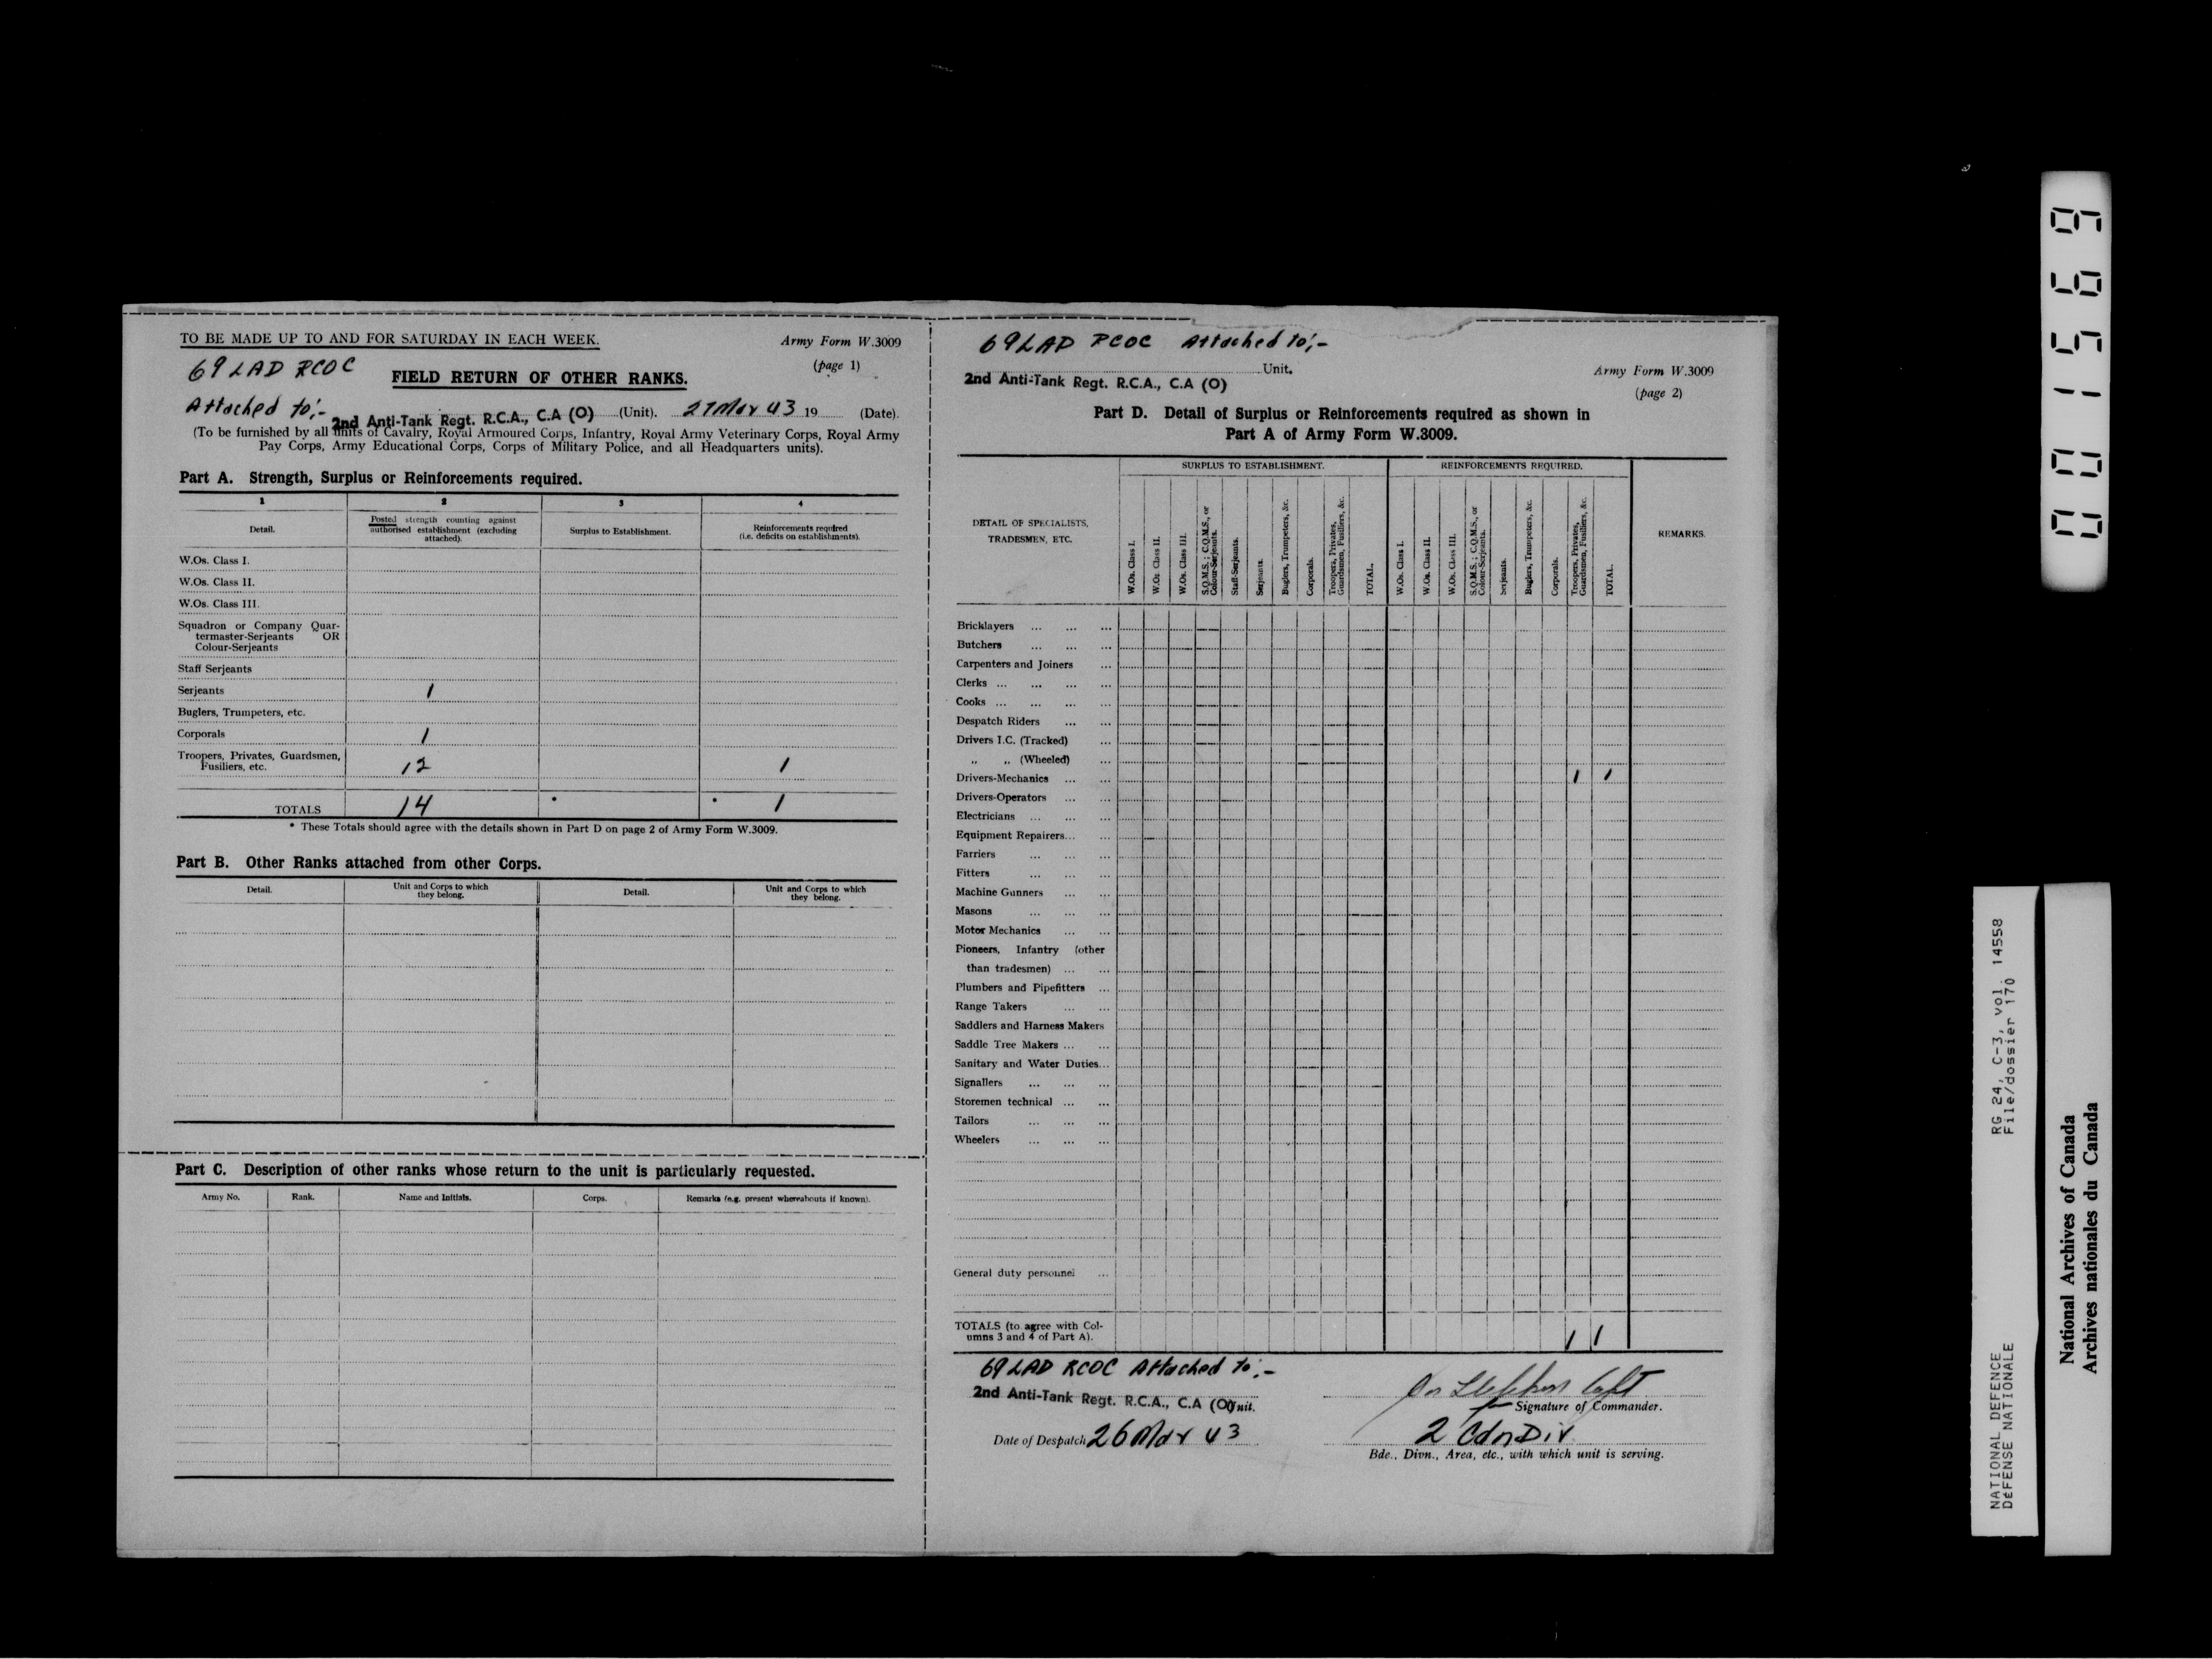 TO BE MADE UP TO AND FOR SATURDAY IN EACH WEEK.
Army Form W.3009
(page 1)
69 LAD RCOC
FIELD RETURN OF OTHER RANKS.
Attached to:-
2nd Anti-Tank Regt. R.C.A., C.A (O) (Unit). 27 Mar 43 19 (Date).
(To be furnished by all units of Cavalry, Royal Armoured Corps, Infantry, Royal Army Veterinary Corps, Royal Army
Pay Corps, Army Educational Corps, Corps of Military Police, and all Headquarters units).
Part A. Strength, Surplus or Reinforcements required.
1 2 3 4
Detail.
Posted strength counting against
authorised establishment (excluding
attached).
Surplus to Establishment.
Reinforcements required
(i.e. deficits on establishments).
W.Os. Class I.
W.Os. Class II.
W.Os. Class III.
Squadron or Company Quar-
termaster-Serjeants OR
Colour-Serjeants
Staff Serjeants
Serjeants 1
Buglers, Trumpeters, etc.
Corporals 1
Troopers, Privates, Guardsmen,
Fusiliers, etc. 12 1
TOTALS 14 * * 1
* These Totals should agree with the details shown in Part D on page 2 of Army Form W.3009.
Part B. Other Ranks attached from other Corps.
Detail.
Unit and Corps to which
they belong.
Detail.
Unit and Corps to which
they belong.
Part C. Description of other ranks whose return to the unit is particularly requested.
Army No. Rank. Name and Initials. Corps. Remarks (e.g. present whereabouts if known).
69 LAD RCOC Attached to:-
Unit.
2nd Anti-Tank Regt. R.C.A., C.A (O)
Army Form W.3009
(page 2)
Part D. Detail of Surplus or Reinforcements required as shown in
Part A of Army Form W.3009.
SURPLUS TO ESTABLISHMENT. REINFORCEMENTS REQUIRED.
DETAIL OF SPECIALISTS,
TRADESMEN, ETC.
W.Os. Class I.
W.Os. Class II.
W.Os. Class III.
S.Q.M.S.; C.Q.M.S., or
Colour-Serjeants.
Staff-Serjeants.
Serjeants.
Buglers, Trumpeters, &c.
Corporals.
Troopers, Privates,
Guardsmen, Fusiliers, &c.
TOTAL.
W.Os. Class I.
W.Os. Class II.
W.Os. Class III.
S.Q.M.S.; C.Q.M.S., or
Colour-Serjeants.
Serjeants.
Buglers, Trumpeters, &c.
Corporals.
Troopers, Privates,
Guardsmen, Fusiliers, &c.
TOTAL.
REMARKS.
Bricklayers ... ... ...
Butchers ... ... ...
Carpenters and Joiners ...
Clerks ... ... ... ...
Cooks ... ... ... ...
Despatch Riders ... ...
Drivers I.C. (Tracked) ...
„ „ (Wheeled) ...
Drivers-Mechanics ... ... 1 1
Drivers-Operators ... ...
Electricians ... ... ...
Equipment Repairers... ...
Farriers ... ... ...
Fitters ... ... ...
Machine Gunners ... ...
Masons ... ... ...
Motor Mechanics ... ...
Pioneers, Infantry (other
than tradesmen) ... ...
Plumbers and Pipefitters ...
Range Takers ... ...
Saddlers and Harness Makers
Saddle Tree Makers ... ...
Sanitary and Water Duties...
Signallers ... ... ...
Storemen technical ... ...
Tailors ... ... ...
Wheelers ... ... ...
General duty personnel ...
TOTALS (to agree with Col-
umns 3 and 4 of Part A). 1 1
69 LAD RCOC Attached to:-
2nd Anti-Tank Regt. R.C.A., C.A (O) Unit.
Capt
for Signature of Commander.
Date of Despatch 26 Mar 43
2 Cdn Div
Bde., Divn., Area, etc., with which unit is serving.
001569
RG 24, C-3, vol. 14558
File/dossier 170
NATIONAL DEFENCE
DÉFENSE NATIONALE
National Archives of Canada
Archives nationales du Canada